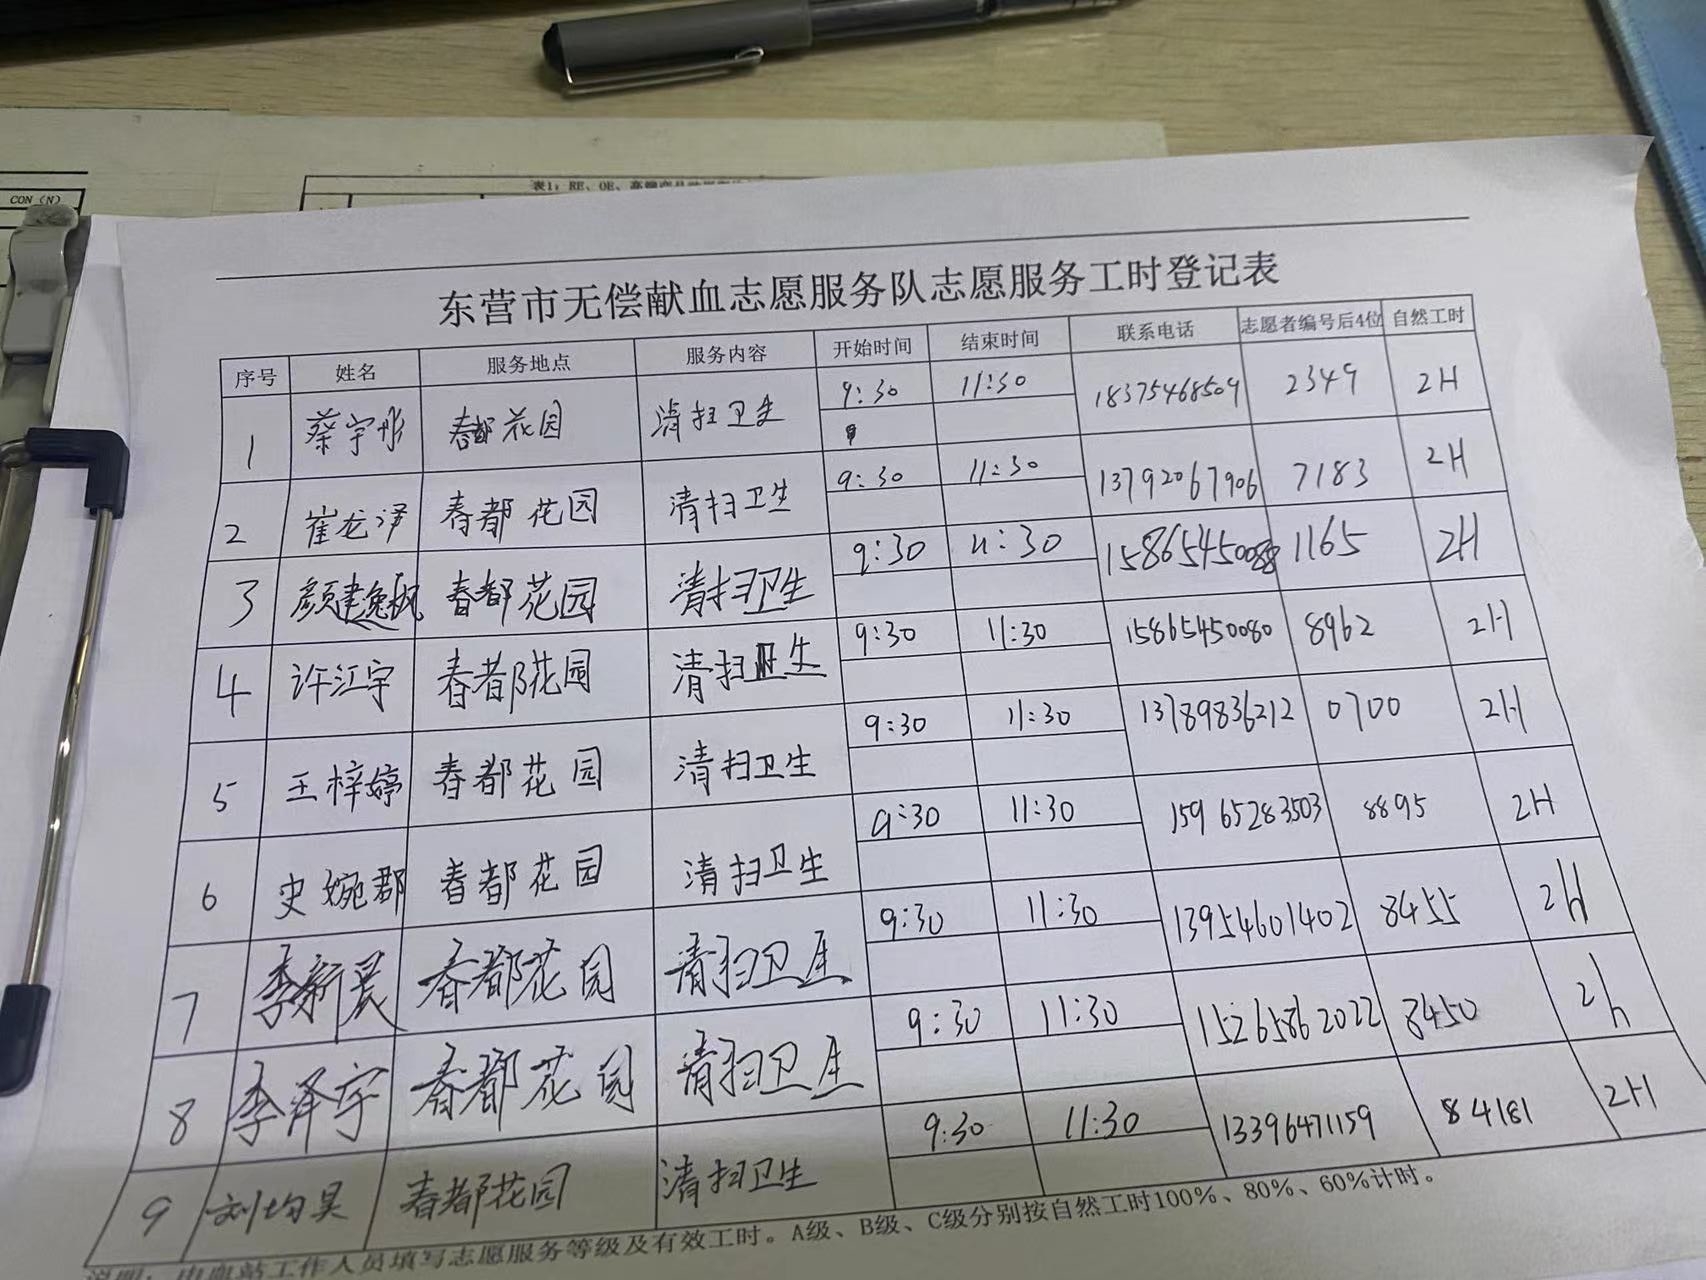 CON (N)
表1: RE、OE、高端产品
东营市无偿献血志愿服务队志愿服务工时登记表
序号 姓名 服务地点 服务内容 开始时间 结束时间 联系电话 志愿者编号后4位 自然工时
1 蔡宇彤 春都花园 清扫卫生 9:30 11:30 18375468509 2349 2H
2 崔龙泽 春都花园 清扫卫生 9:30 11:30 13792067906 7183 2H
3 颜 春都花园 清扫卫生 9:30 11:30 1165 2H
4 许江宇 春都花园 清扫卫生 9:30 11:30 15865450080 8962 2H
5 王梓婷 春都花园 清扫卫生 9:30 11:30 13789836212 0700 2H
6 史婉郡 春都花园 清扫卫生 9:30 11:30 15965283503 8895 2H
7 李新晨 春都花园 清扫卫生 9:30 11:30 13954601402 8455 2H
8 李泽宇 春都花园 清扫卫生 9:30 11:30 15265862022 8450 2h
9 刘均昊 春都花园 清扫卫生 9:30 11:30 13396471159 84181 2H
说明:由血站工作人员填写志愿服务等级及有效工时。A级、B级、C级分别按自然工时100%、80%、60%计时。